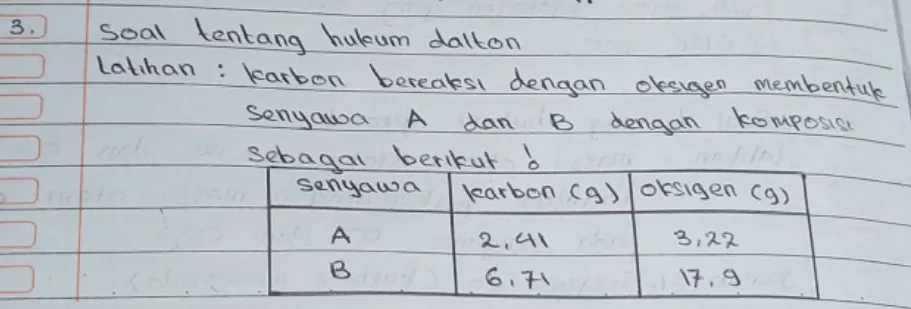 3. Soal tentang hukum dalton
Latihan : karbon bereaksi dengan oksigen membentuk
senyawa A dan B dengan komposisi
sebagai berikut !
senyawa karbon (g) oksigen (g)
A 2,41 3,22
B 6,71 17,9